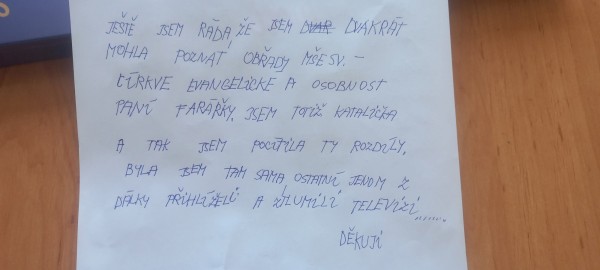 JEŠTĚ JSEM RÁDA, ŽE JSEM DVAKRÁT
MOHLA POZNAT OBŘADY MŠE SV. –
CÍRKVE EVANGELICKÉ A OSOBNOST
PANÍ FARÁŘKY. JSEM TOTIŽ KATALIČKA
A TAK JSEM POCÍTILA TY ROZDÍLY.
BYLA JSEM TAM SAMA, OSTATNÍ JENOM Z
DÁLKY PŘIHLÍŽELI A ZTLUMILI TELEVIZI.......
DĚKUJI